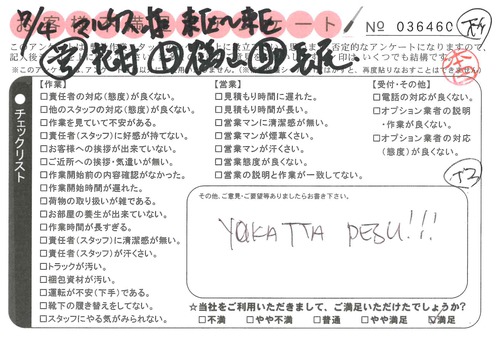 お客様 アンケート № 036460
このアンケートは
否定的なアンケートになりますので、
いつでも結構です。
チェックリスト
【作業】
□責任者の対応(態度)が良くない。
□他のスタッフの対応(態度)が良くない。
□作業を見ていて不安がある。
□責任者(スタッフ)に好感が持てない。
□お客様への挨拶が出来ていない。
□ご近所への挨拶・気遣いが無い。
□作業開始前の内容確認がなかった。
□作業開始時間が遅れた。
□荷物の取り扱いが雑である。
□お部屋の養生が出来ていない。
□作業時間が長すぎる。
□責任者(スタッフ)に清潔感が無い。
□責任者(スタッフ)が汗くさい。
□トラックが汚い。
□梱包資材が汚い。
□運転が不安(下手)である。
□靴下の履き替えをしてない。
□スタッフにやる気がみられない。
【営業】
□見積もり時間に遅れた。
□見積もり時間が長い。
□営業マンに清潔感が無い。
□営業マンが煙草くさい。
□営業マンが汗くさい。
□営業態度が良くない。
□営業の説明と作業が一致してない。
【受付・その他】
□電話の対応が良くない。
□オプション業者の説明
・作業が良くない。
□オプション業者の対応
(態度)が良くない。
その他、ご意見・ご要望等ありましたらお書き下さい。
YOKATTA DESU!!!
☆当社をご利用いただきまして、ご満足いただけたでしょうか?
□不満 □やや不満 □普通 □やや満足 ☑満足